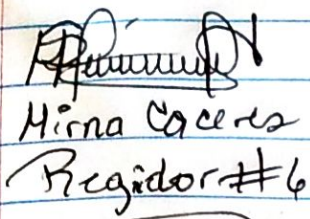 Mirna Caceres
Regidor #6